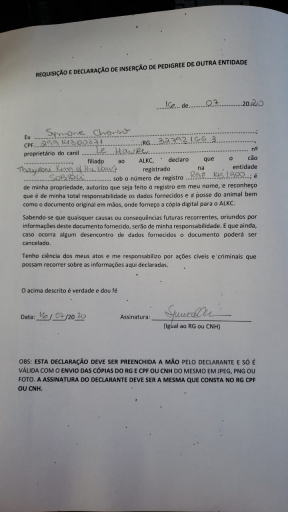 REQUISIÇÃO E DECLARAÇÃO DE INSERÇÃO DE PEDIGREE DE OUTRA ENTIDADE
16 de 07 2020
Eu Symone
CPF RG
proprietário do canil Le nº
filiado ao ALKC, declaro que o cão
King of registrado na entidade
SOBRACI sob o número de registro é
de minha propriedade, autorizo que seja feito o registro em meu nome, e reconheço
que é de minha total responsabilidade os dados fornecidos e a posse do animal bem
como o documento original em mãos, onde forneço a cópia digital para o ALKC.
Sabendo-se que quaisquer causas ou consequências futuras recorrentes, oriundos por
informações deste documento fornecido, serão de minha responsabilidade. E que ainda,
caso ocorra algum desencontro de dados fornecidos o documento poderá ser
cancelado.
Tenho ciência dos meus atos e me responsabilizo por ações cíveis e criminais que
possam recorrer as informações aqui declaradas.
O acima descrito é verdade e dou fé
Data: 16/07/2020 Assinatura:
(Igual ao RG ou CNH)
OBS: ESTA DECLARAÇÃO DEVE SER PREENCHIDA A MÃO PELO DECLARANTE E SÓ É
VÁLIDA COM O ENVIO DAS CÓPIAS DO RG E CPF OU CNH DO MESMO EM JPEG, PNG OU
FOTO. A ASSINATURA DO DECLARANTE DEVE SER A MESMA QUE CONSTA NO RG CPF
OU CNH.